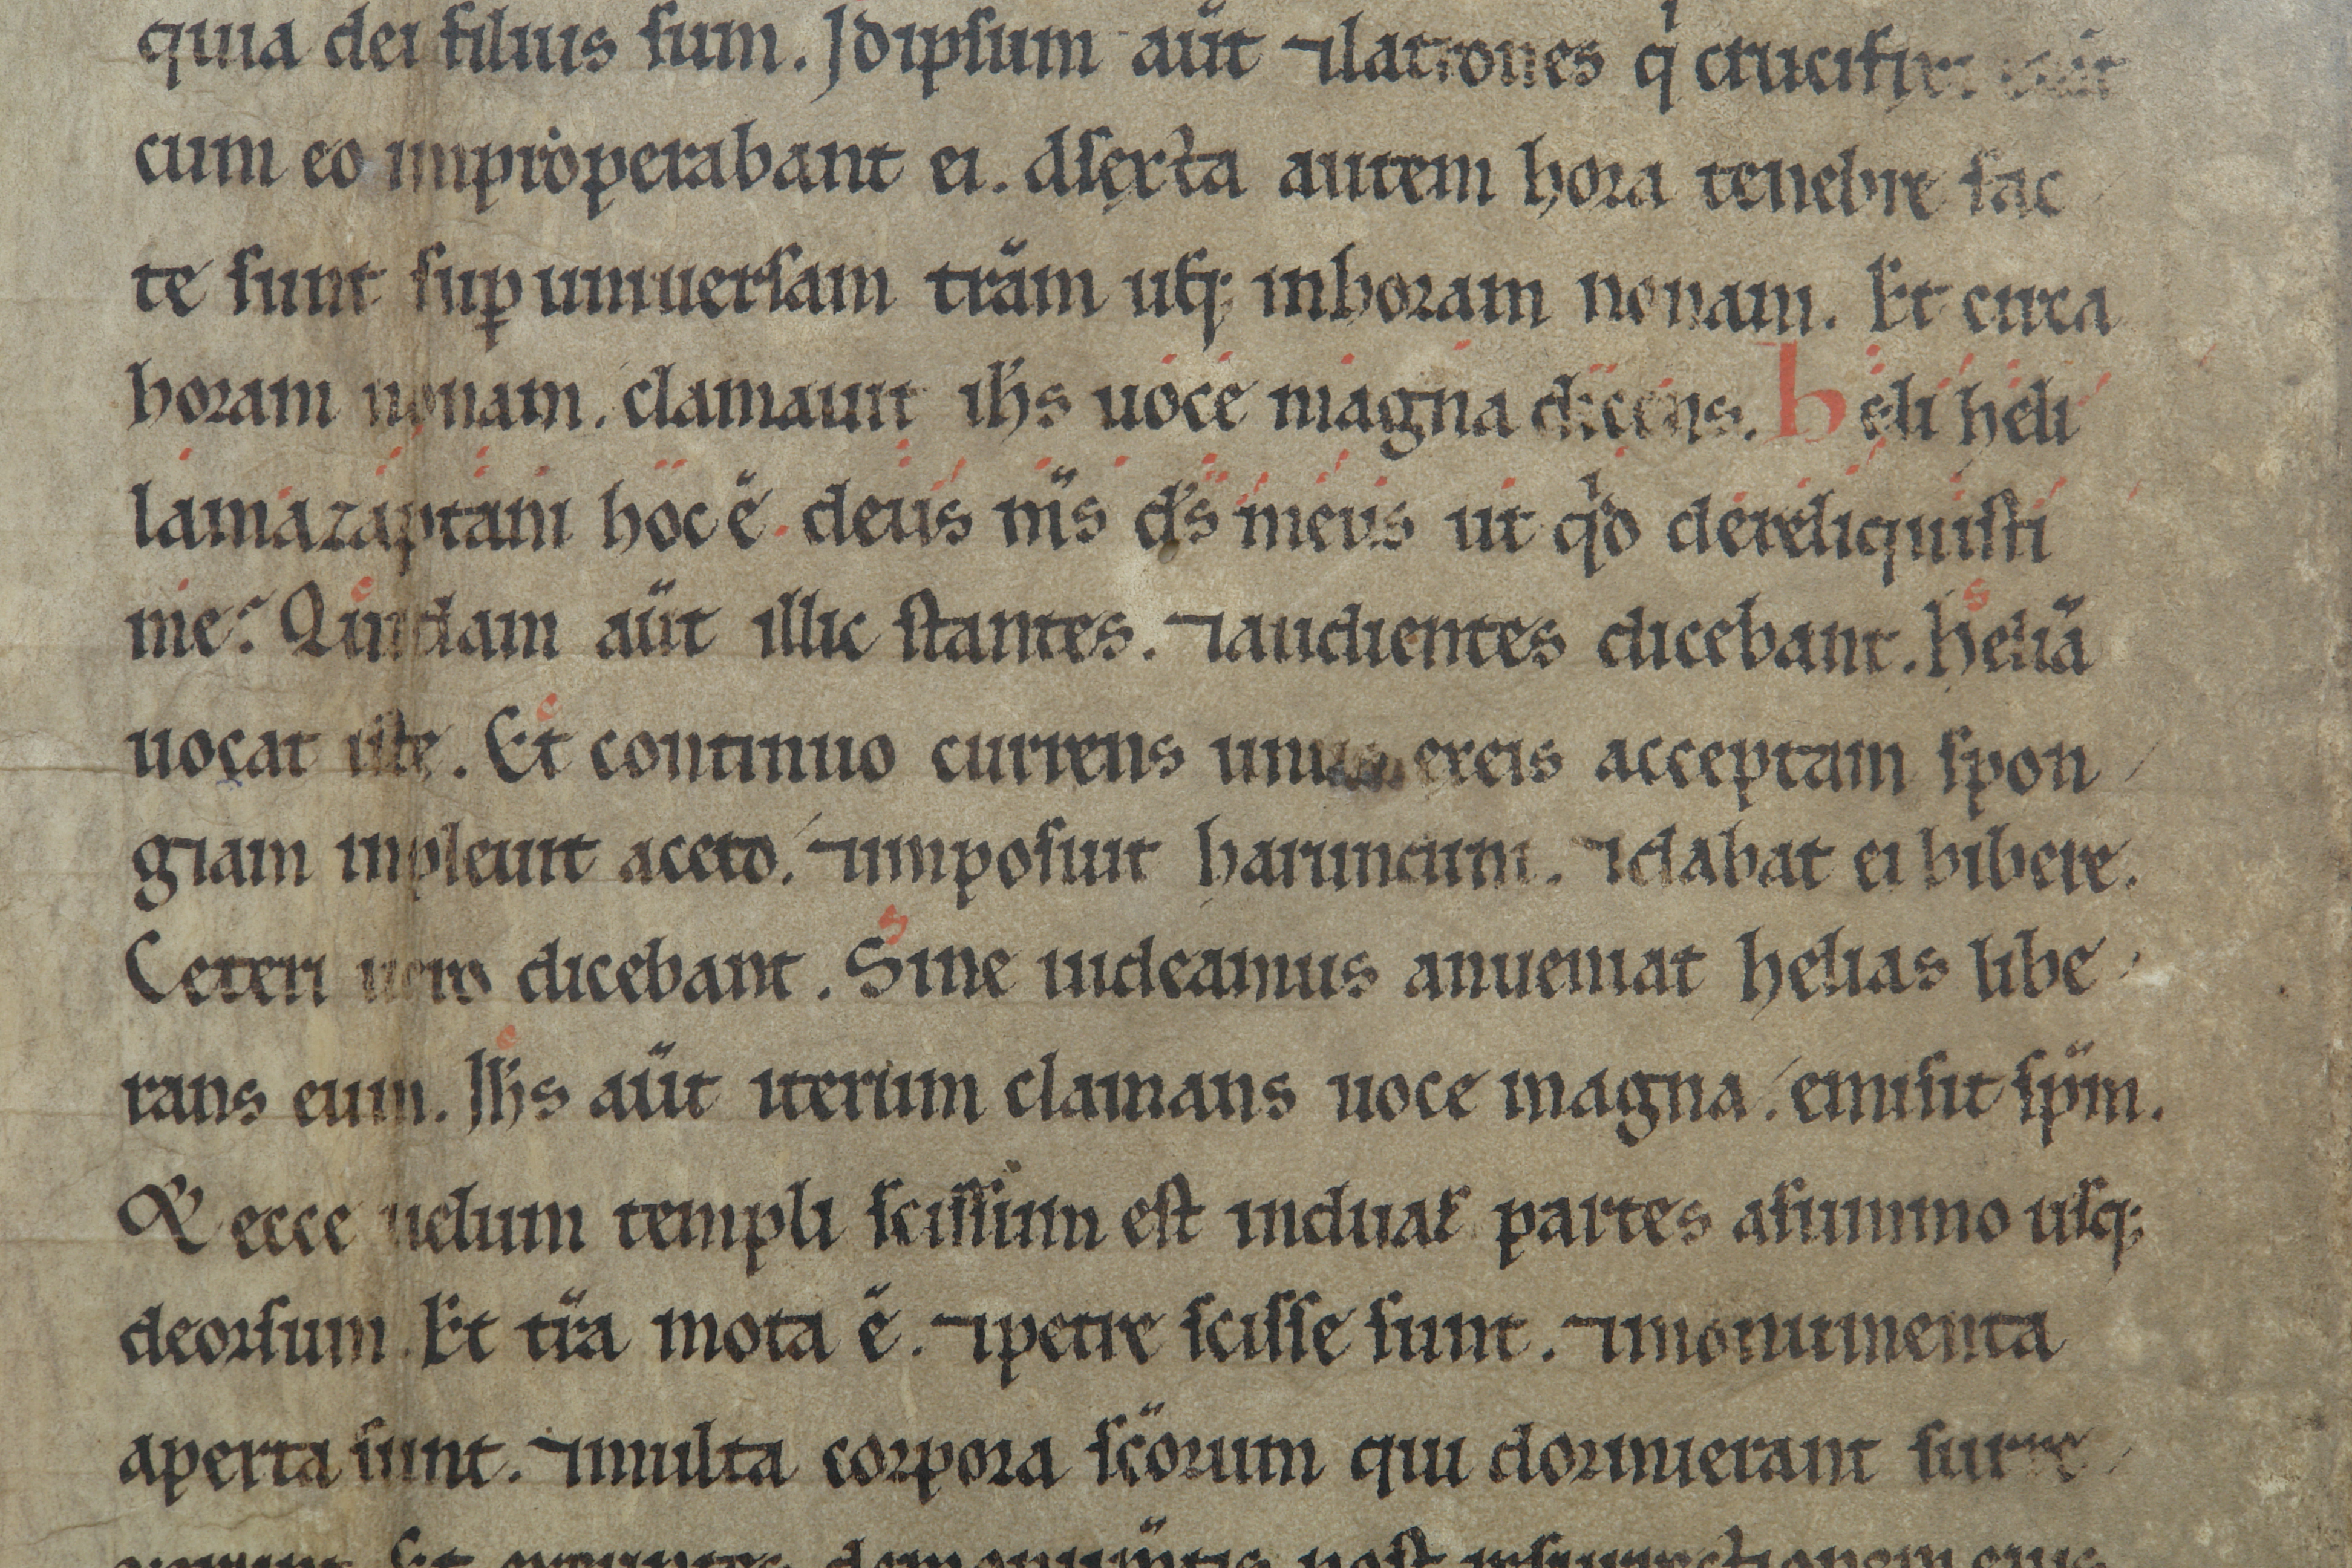 quia dei filius sum. Jdipsum aūt ⁊latrones qͥ crucifixi
cum eo improperabant ei. Asęxta autem hora tenebre fac
te sunt suꝑ uniuersam trām usq; inhoram nonam. Et circa
horam nonam. clamauit ih̄s uoce magna dicens. heli heli
lamazaptani hoc ē. deus m̄s d̄s meus ut qͥd dereliquisti
me? Quidam aūt illic stantes. ⁊audientes dicebant. heliā
uocat iste. Et continuo currens unus exeis acceptam spon
giam inpleuit aceto. ⁊imposuit harundini. ⁊dabat ei bibere.
Ceteri uero dicebant. Sine uideamus anueniat helias libe
rans eum. Ih̄s aūt iterum clamans uoce magna. emisit sp̄m.
& ecce uelum templi scissum est induas partes asummo usq;
deorsum. Et tr̄a mota ē. ⁊petre scisse sunt. ⁊monumenta
aperta sunt. ⁊multa corpora sc̄orum qui dormierant surre
post insurrectionem eius